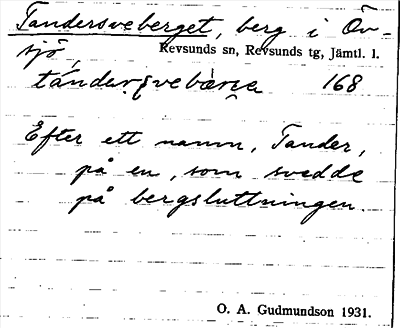 Tandersveberget, berg i Öv-
sjö, Revsunds sn, Revsunds tg, Jämtl. l.
168
Efter ett namn, Tander,
på en, som svedde
på bergsluttningen.
O. A. Gudmundson 1931.